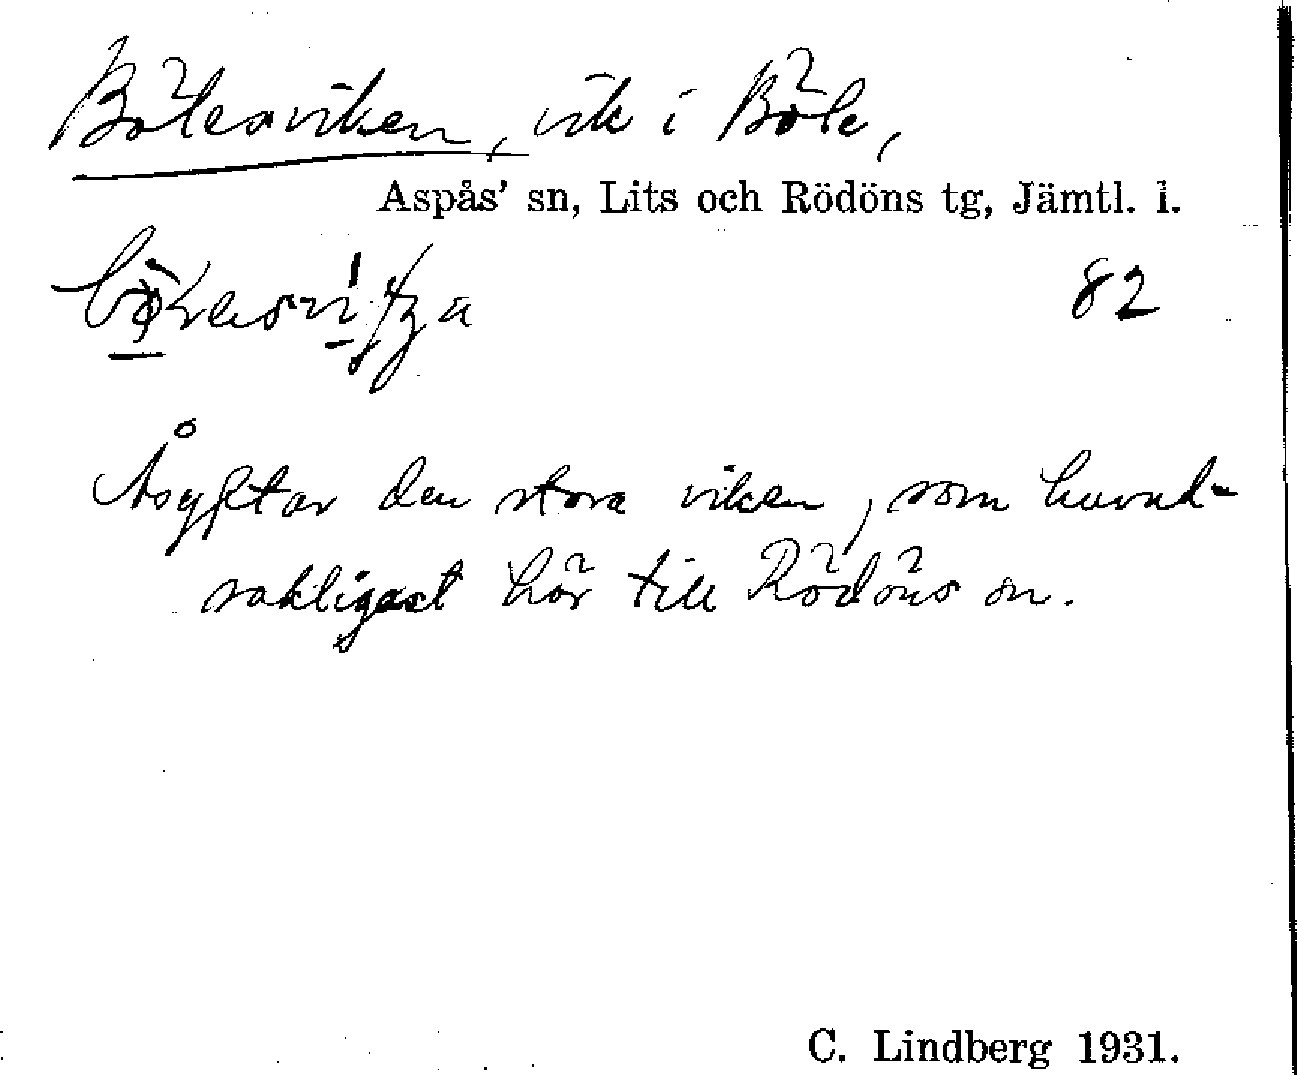 Bölesviken, vik i Böle,
Aspås' sn, Lits och Rödöns tg, Jämtl. l.
82
Åsyftar den stora viken, som huvud-
sakligast hör till Rödöns sn.
C. Lindberg 1931.